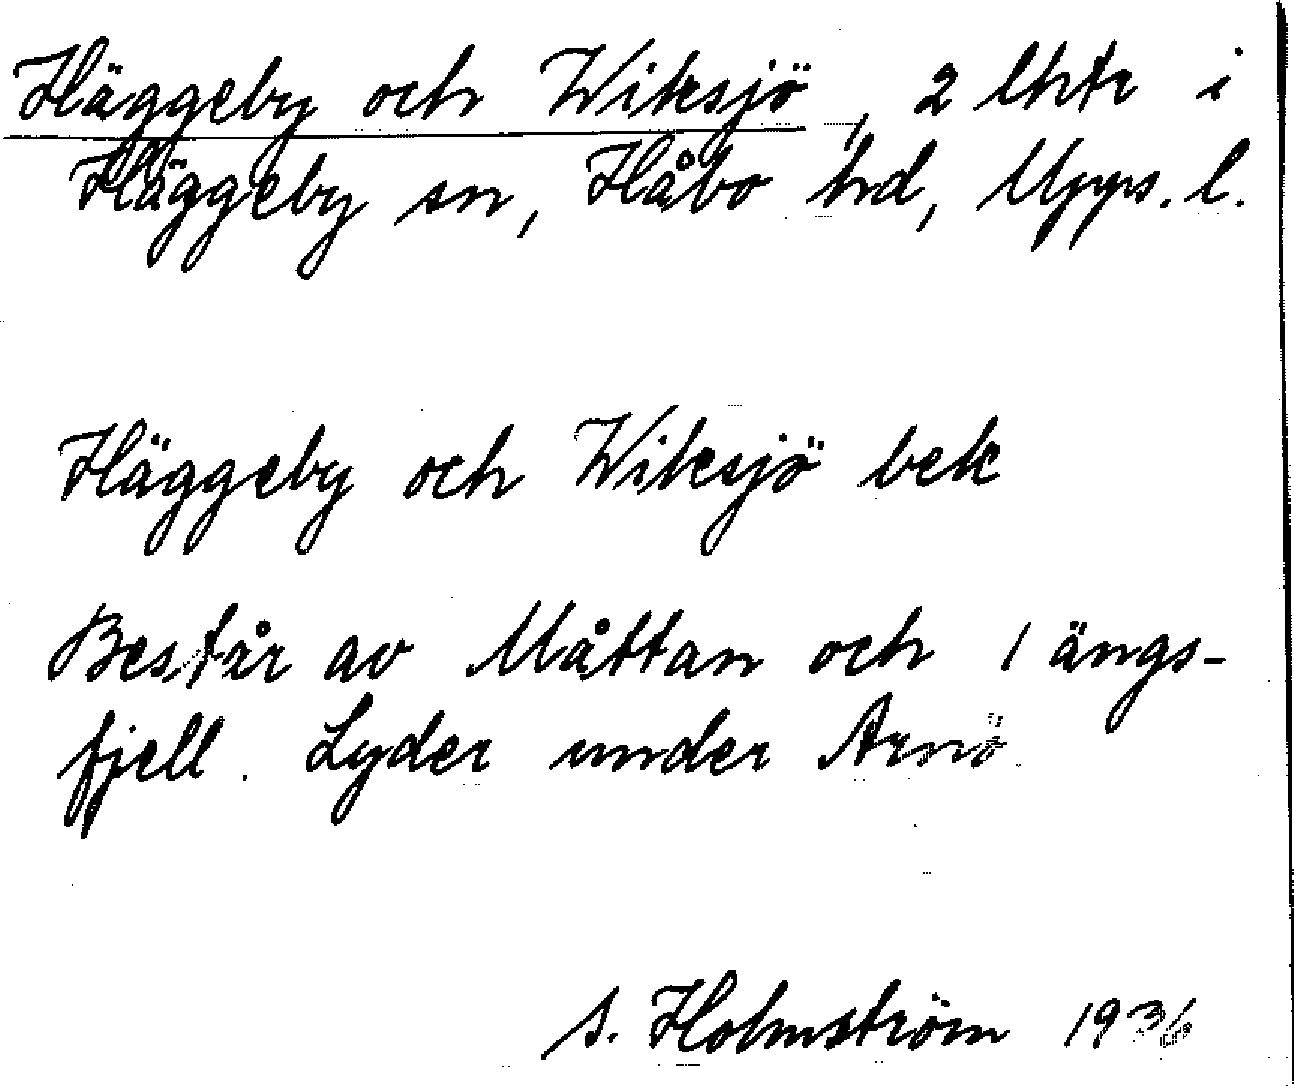 Häggeby och Wiksjö, 2 lhtr i
Häggeby sn, Håbo hd, Upps. l.
Häggeby och Wiksjö bek
Består av Måttan och 1 ängs-
fjell. Lyder under Arnö
S. Holmström 1936